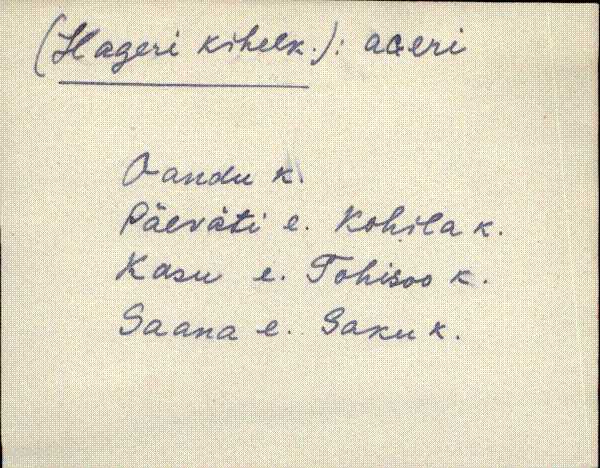 (Hageri kihelk.): aGeri
Oandu k.
Päeväti e. Kohila k.
Kasu e. Tohisoo k.
Saana e. Saku k.